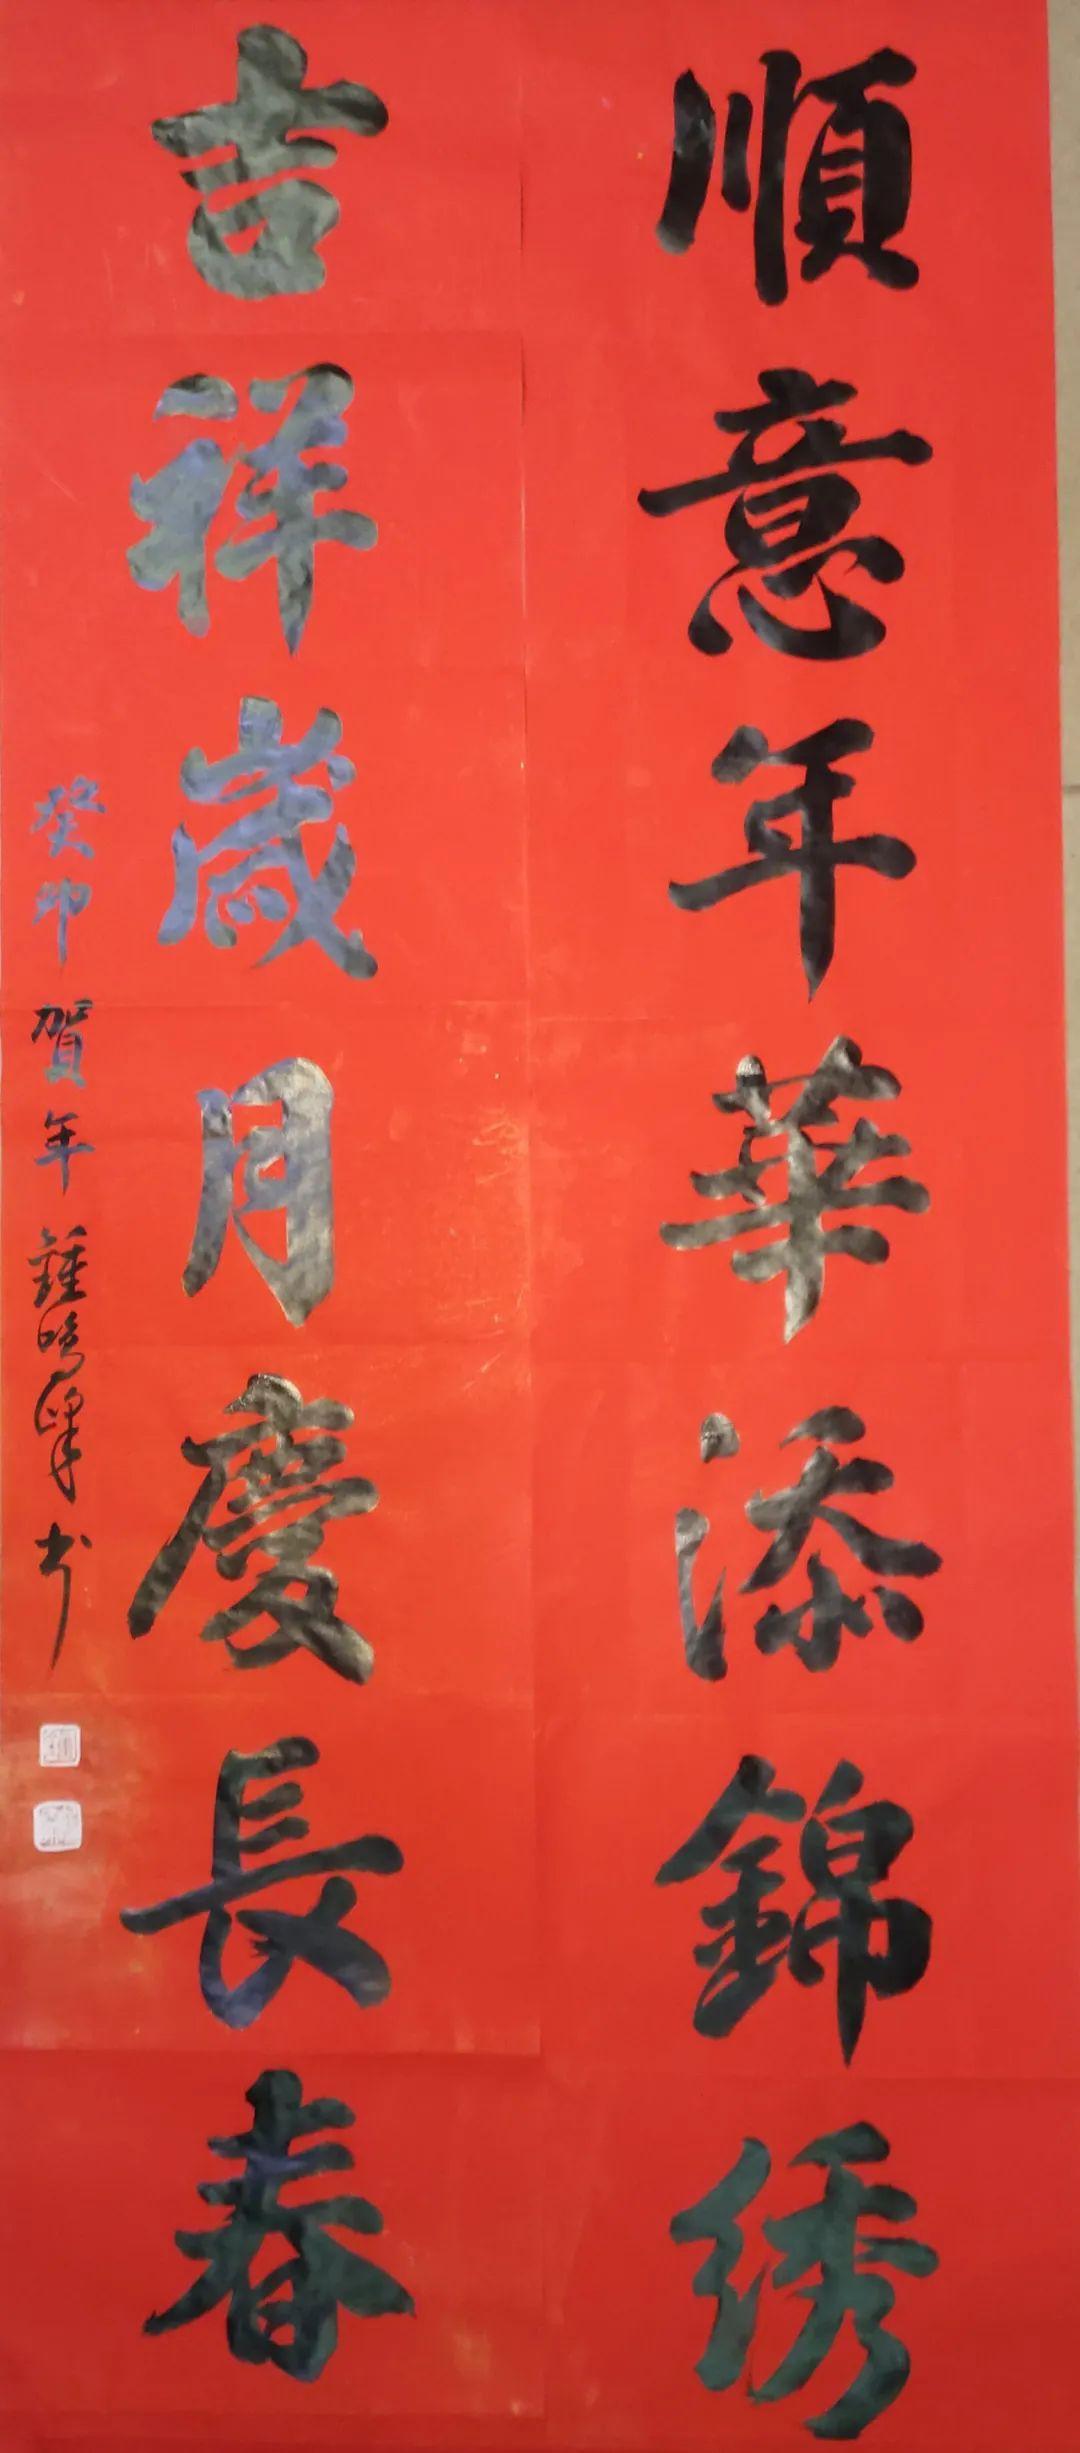 順意年華添錦绣
吉祥歲月慶長春
癸卯賀年 鍾鳴 书